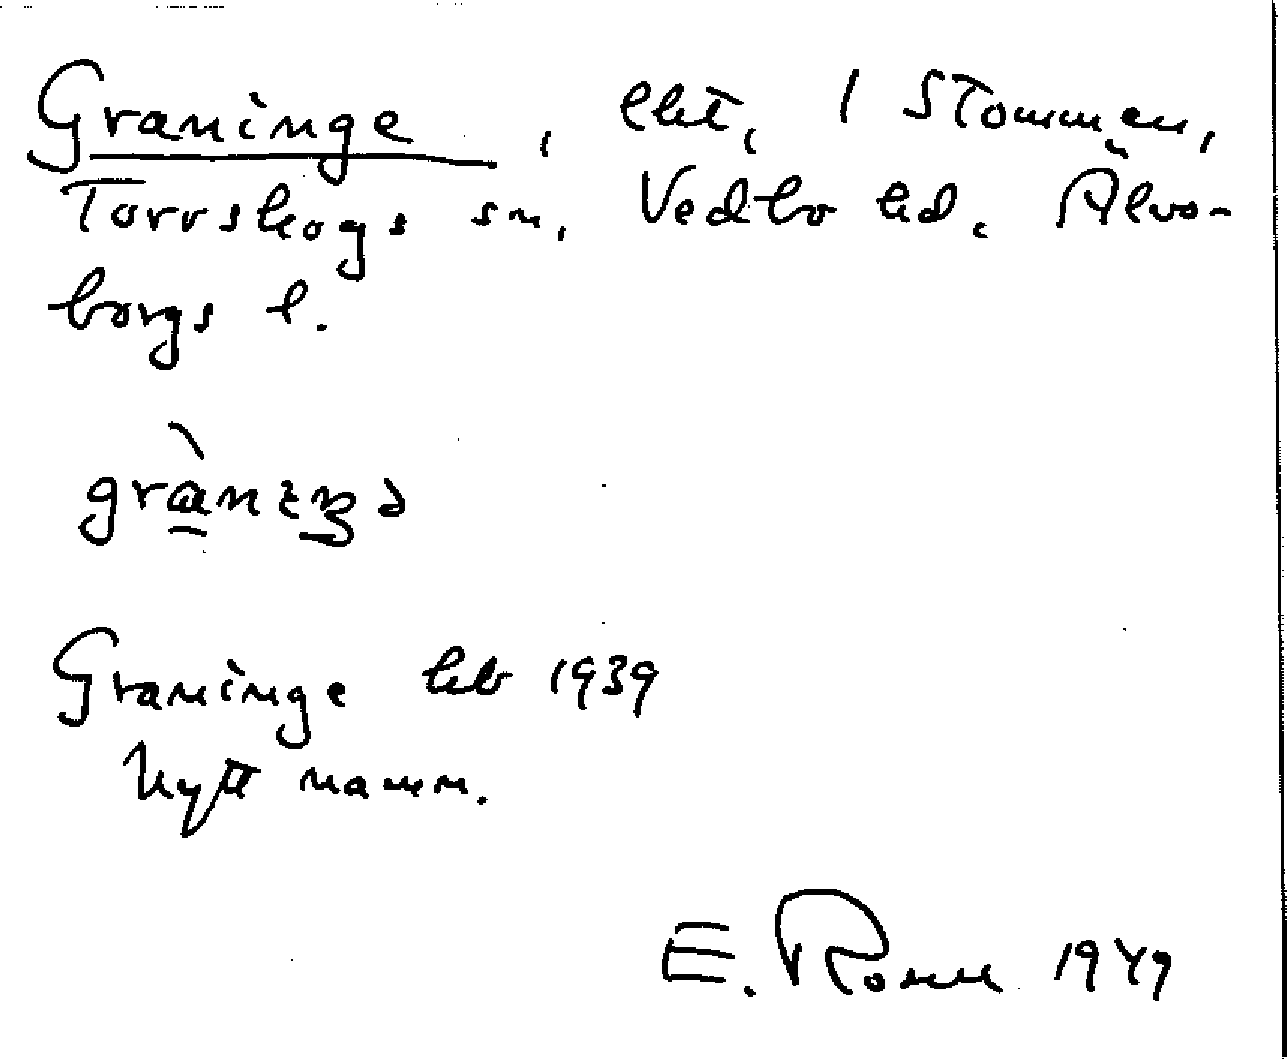 Graninge, lht, 1 Stommen,
Torrskogs sn, Vedbo hd. Älvs-
borgs l.
Graninge hb 1939
Nytt namn.
E. Rosell 1949